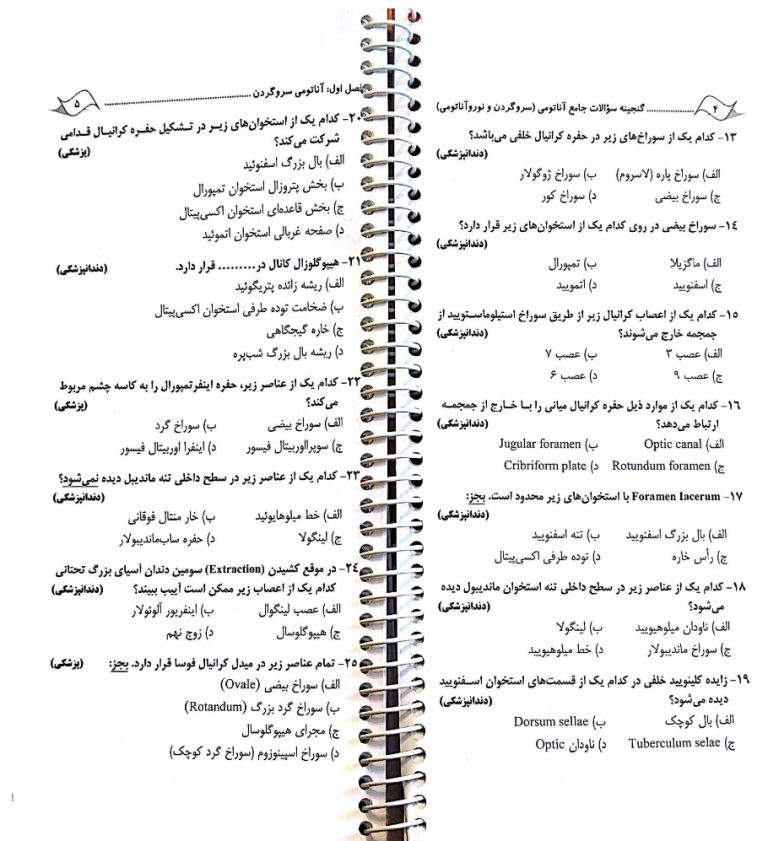 ۴ ................ گنجینه سؤالات جامع آناتومی (سروگردن و نوروآناتومی)
۱۳- کدام یک از سوراخ‌های زیر در حفره کرانیال خلفی می‌باشد؟
(دندانپزشکی)
الف) سوراخ پاره (لاسروم) ب) سوراخ ژوگولار
ج) سوراخ بیضی د) سوراخ کور
۱۴- سوراخ بیضی در روی کدام یک از استخوان‌های زیر قرار دارد؟
(دندانپزشکی)
الف) ماگزیلا ب) تمپورال
ج) اسفنویید د) اتمویید
۱۵- کدام یک از اعصاب کرانیال زیر از طریق سوراخ استیلوماستویید از
جمجمه خارج می‌شوند؟ (دندانپزشکی)
الف) عصب ۳ ب) عصب ۷
ج) عصب ۹ د) عصب ۶
۱۶- کدام یک از موارد ذیل حفره کرانیال میانی را با خارج از جمجمه
ارتباط می‌دهد؟ (دندانپزشکی)
الف) Optic canal ب) Jugular foramen
ج) Rotundum foramen د) Cribriform plate
۱۷- Foramen lacerum با استخوان‌های زیر محدود است، بجز:
(دندانپزشکی)
الف) بال بزرگ اسفنویید ب) تنه اسفنویید
ج) رأس خاره د) توده طرفی اکسی‌پیتال
۱۸- کدام یک از عناصر زیر در سطح داخلی تنه استخوان ماندیبول دیده
می‌شود؟ (دندانپزشکی)
الف) ناودان میلوهیویید ب) لینگولا
ج) سوراخ ماندیبولار د) خط میلوهیویید
۱۹- زایده کلینویید خلفی در کدام یک از قسمت‌های استخوان اسفنویید
دیده می‌شود؟ (دندانپزشکی)
الف) بال کوچک ب) Dorsum sellae
ج) Tuberculum selae د) ناودان Optic
فصل اول: آناتومی سروگردن ................ ۵
۲۰- کدام یک از استخوان‌های زیر در تشکیل حفره کرانیال قدامی
شرکت می‌کند؟ (پزشکی)
الف) بال بزرگ اسفنوئید
ب) بخش پتروزال استخوان تمپورال
ج) بخش قاعده‌ای استخوان اکسی‌پیتال
د) صفحه غربالی استخوان اتموئید
۲۱- هیپوگلوزال کانال در......... قرار دارد. (دندانپزشکی)
الف) ریشه زائده پتریگوئید
ب) ضخامت توده طرفی استخوان اکسی‌پیتال
ج) خاره گیجگاهی
د) ریشه بال بزرگ شب‌پره
۲۲- کدام یک از عناصر زیر، حفره اینفرتمپورال را به کاسه چشم مربوط
می‌کند؟ (پزشکی)
الف) سوراخ بیضی ب) سوراخ گرد
ج) سوپرااوربیتال فیسور د) اینفرا اوربیتال فیسور
۲۳- کدام یک از عناصر زیر در سطح داخلی تنه ماندیبل دیده نمی‌شود؟
(دندانپزشکی)
الف) خط میلوهایوئید ب) خار منتال فوقانی
ج) لینگولا د) حفره ساب‌ماندیبولار
۲۴- در موقع کشیدن (Extraction) سومین دندان آسیای بزرگ تحتانی
کدام یک از اعصاب زیر ممکن است آسیب ببیند؟ (دندانپزشکی)
الف) عصب لینگوال ب) اینفریور آلوئولار
ج) هیپوگلوسال د) زوج نهم
۲۵- تمام عناصر زیر در میدل کرانیال فوسا قرار دارد. بجز: (پزشکی)
الف) سوراخ بیضی (Ovale)
ب) سوراخ گرد بزرگ (Rotandum)
ج) مجرای هیپوگلوسال
د) سوراخ اسپینوزوم (سوراخ گرد کوچک)